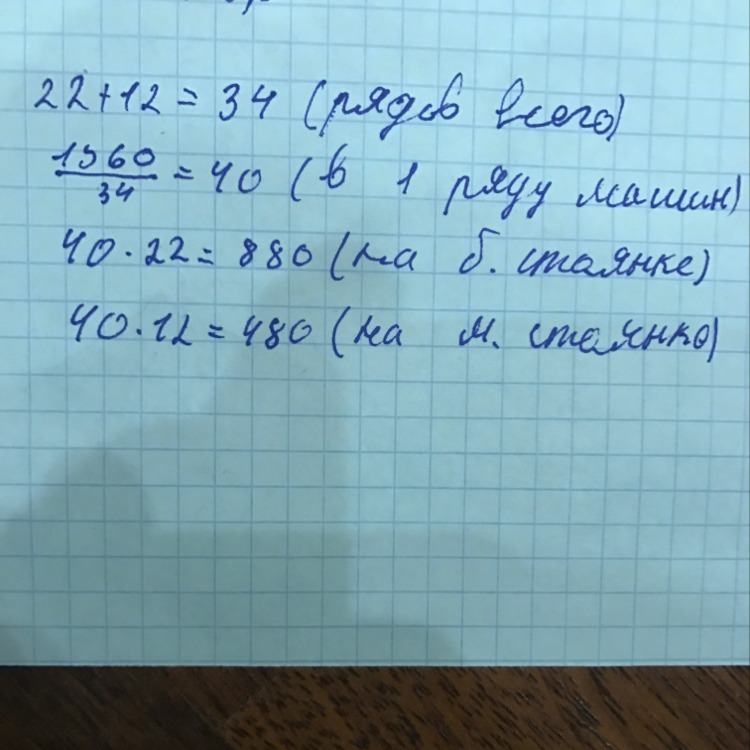 22+12=34 (рядов всего)
1360/34 =40 (в 1 ряду машин)
40·22= 880 (на б. стоянке)
40·12=480 (на м. стоянке)